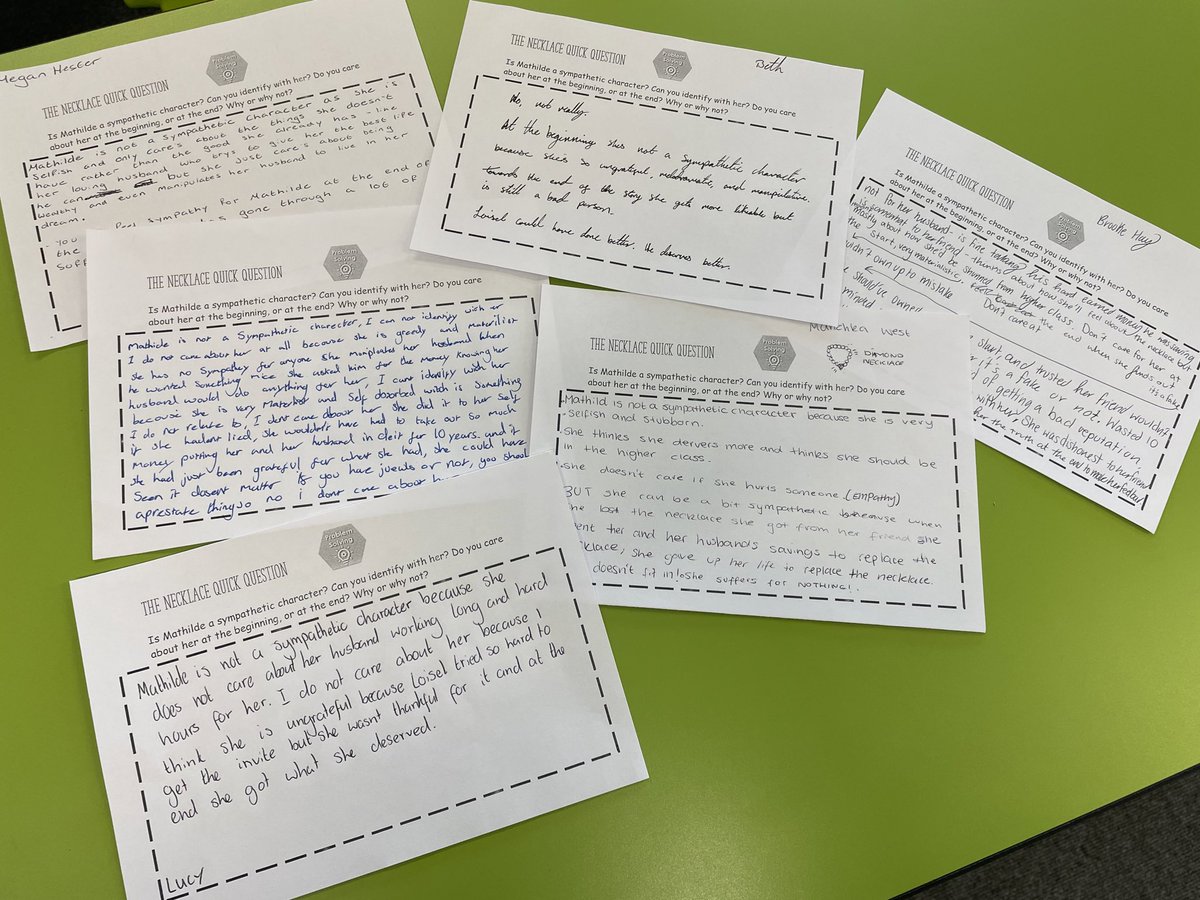 Megan Hester
THE NECKLACE QUICK QUESTION
Problem
Solving
Is Mathilde a sympathetic character? Can you identify with her? Do you care
about her at the beginning, or at the end? Why or why not?
Mathilde is not a sympathetic character as she is
selfish and only care's about the things she doesn't
have rather than the good she already has like
her loving husband who trys to give her the best life
he can but she just cares about being
wealthy and even manipulates her husband to live in her
dream.
You feel sympathy for Mathilde at the end of
the gone through a lot of
THE NECKLACE QUICK QUESTION
Problem
Solving
Beth
Is Mathilde a sympathetic character? Can you identify with her? Do you care
about her at the beginning, or at the end? Why or why not?
No, not really.
At the beginning shes not a sympathetic character
because she is so ungrateful, melodramatic, and manipulative.
towards the end of the story she gets more likeable but
is still a bad person.
Loisel could have done better. He deserves better.
THE NECKLACE QUICK QUESTION
Brooke Hay
Is Mathilde a sympathetic character? Can you identify with her? Do you care
about her at the beginning, or at the end? Why or why not?
not for her husband - is fine taking his hard earned money he was saving
to her friend - thinks about how she'll feel about the necklace but
mostly about how she'd be shunned from higher class. Don't care for her at
the start, very materialistic, the end when she finds out
couldn't own up to mistake Don't care at it's a fake
should've owned
start, and trusted her friend wouldn't
it's a fake or not. Wasted 10
of getting a bad reputation
with her, she was dishonest to her friend
her the truth at the end to make her feel bad
THE NECKLACE QUICK QUESTION
Problem
Solving
Is Mathilde a sympathetic character? Can you identify with her? Do you care
about her at the beginning, or at the end? Why or why not?
Mathilde is not a Sympathetic character, I can not identify with her
I do not care about her at all because she is greedy and materilist
she has no Sympathy for anyone she maniplates her husband when
he wanted something nice she asked him for the money knowing her
husband would do anything for her, I cant identify with her
because she is very Materilist and self absorbed witch is something
I do not relate to, I dont care about her she did it to her self
if she hadent lied, she wouldn't have had to take out so much
money putting her and her husband in debt for 10 years. and if
she had just been grateful for what she had, she could have
seen it dosent matter if you have juewls or not, you shoul
aprestate things so no i dont care about
THE NECKLACE QUICK QUESTION
Problem
Solving
West
DIAMOND
NECKLACE
Is Mathilde a sympathetic character? Can you identify with her? Do you care
about her at the beginning, or at the end? Why or why not?
Mathild is not a sympathetic character because she is very
selfish and stubborn.
She thinks she dervers more and thinks she should be
in the higher class.
she doesn't care if she hurts someone (empathy)
BUT she can be a bit sympathetic because when
she lost the necklace she got from her friend she
ent her and her husbands savings to replace the
cklace, she gave up her life to replace the necklace.
doesn't fit in! She suffers for NOTHING!
THE NECKLACE QUICK QUESTION
Problem
Solving
Is Mathilde a sympathetic character? Can you identify with her? Do you care
about her at the beginning, or at the end? Why or why not?
Mathilde is not a sympathetic character because she
does not care about her husband working long and hard
hours for her. I do not care about her because I
think she is ungrateful because Loisel tried so hard to
get the invite but she wasnt thankful for it and at the
end she got what she deserved.
Lucy